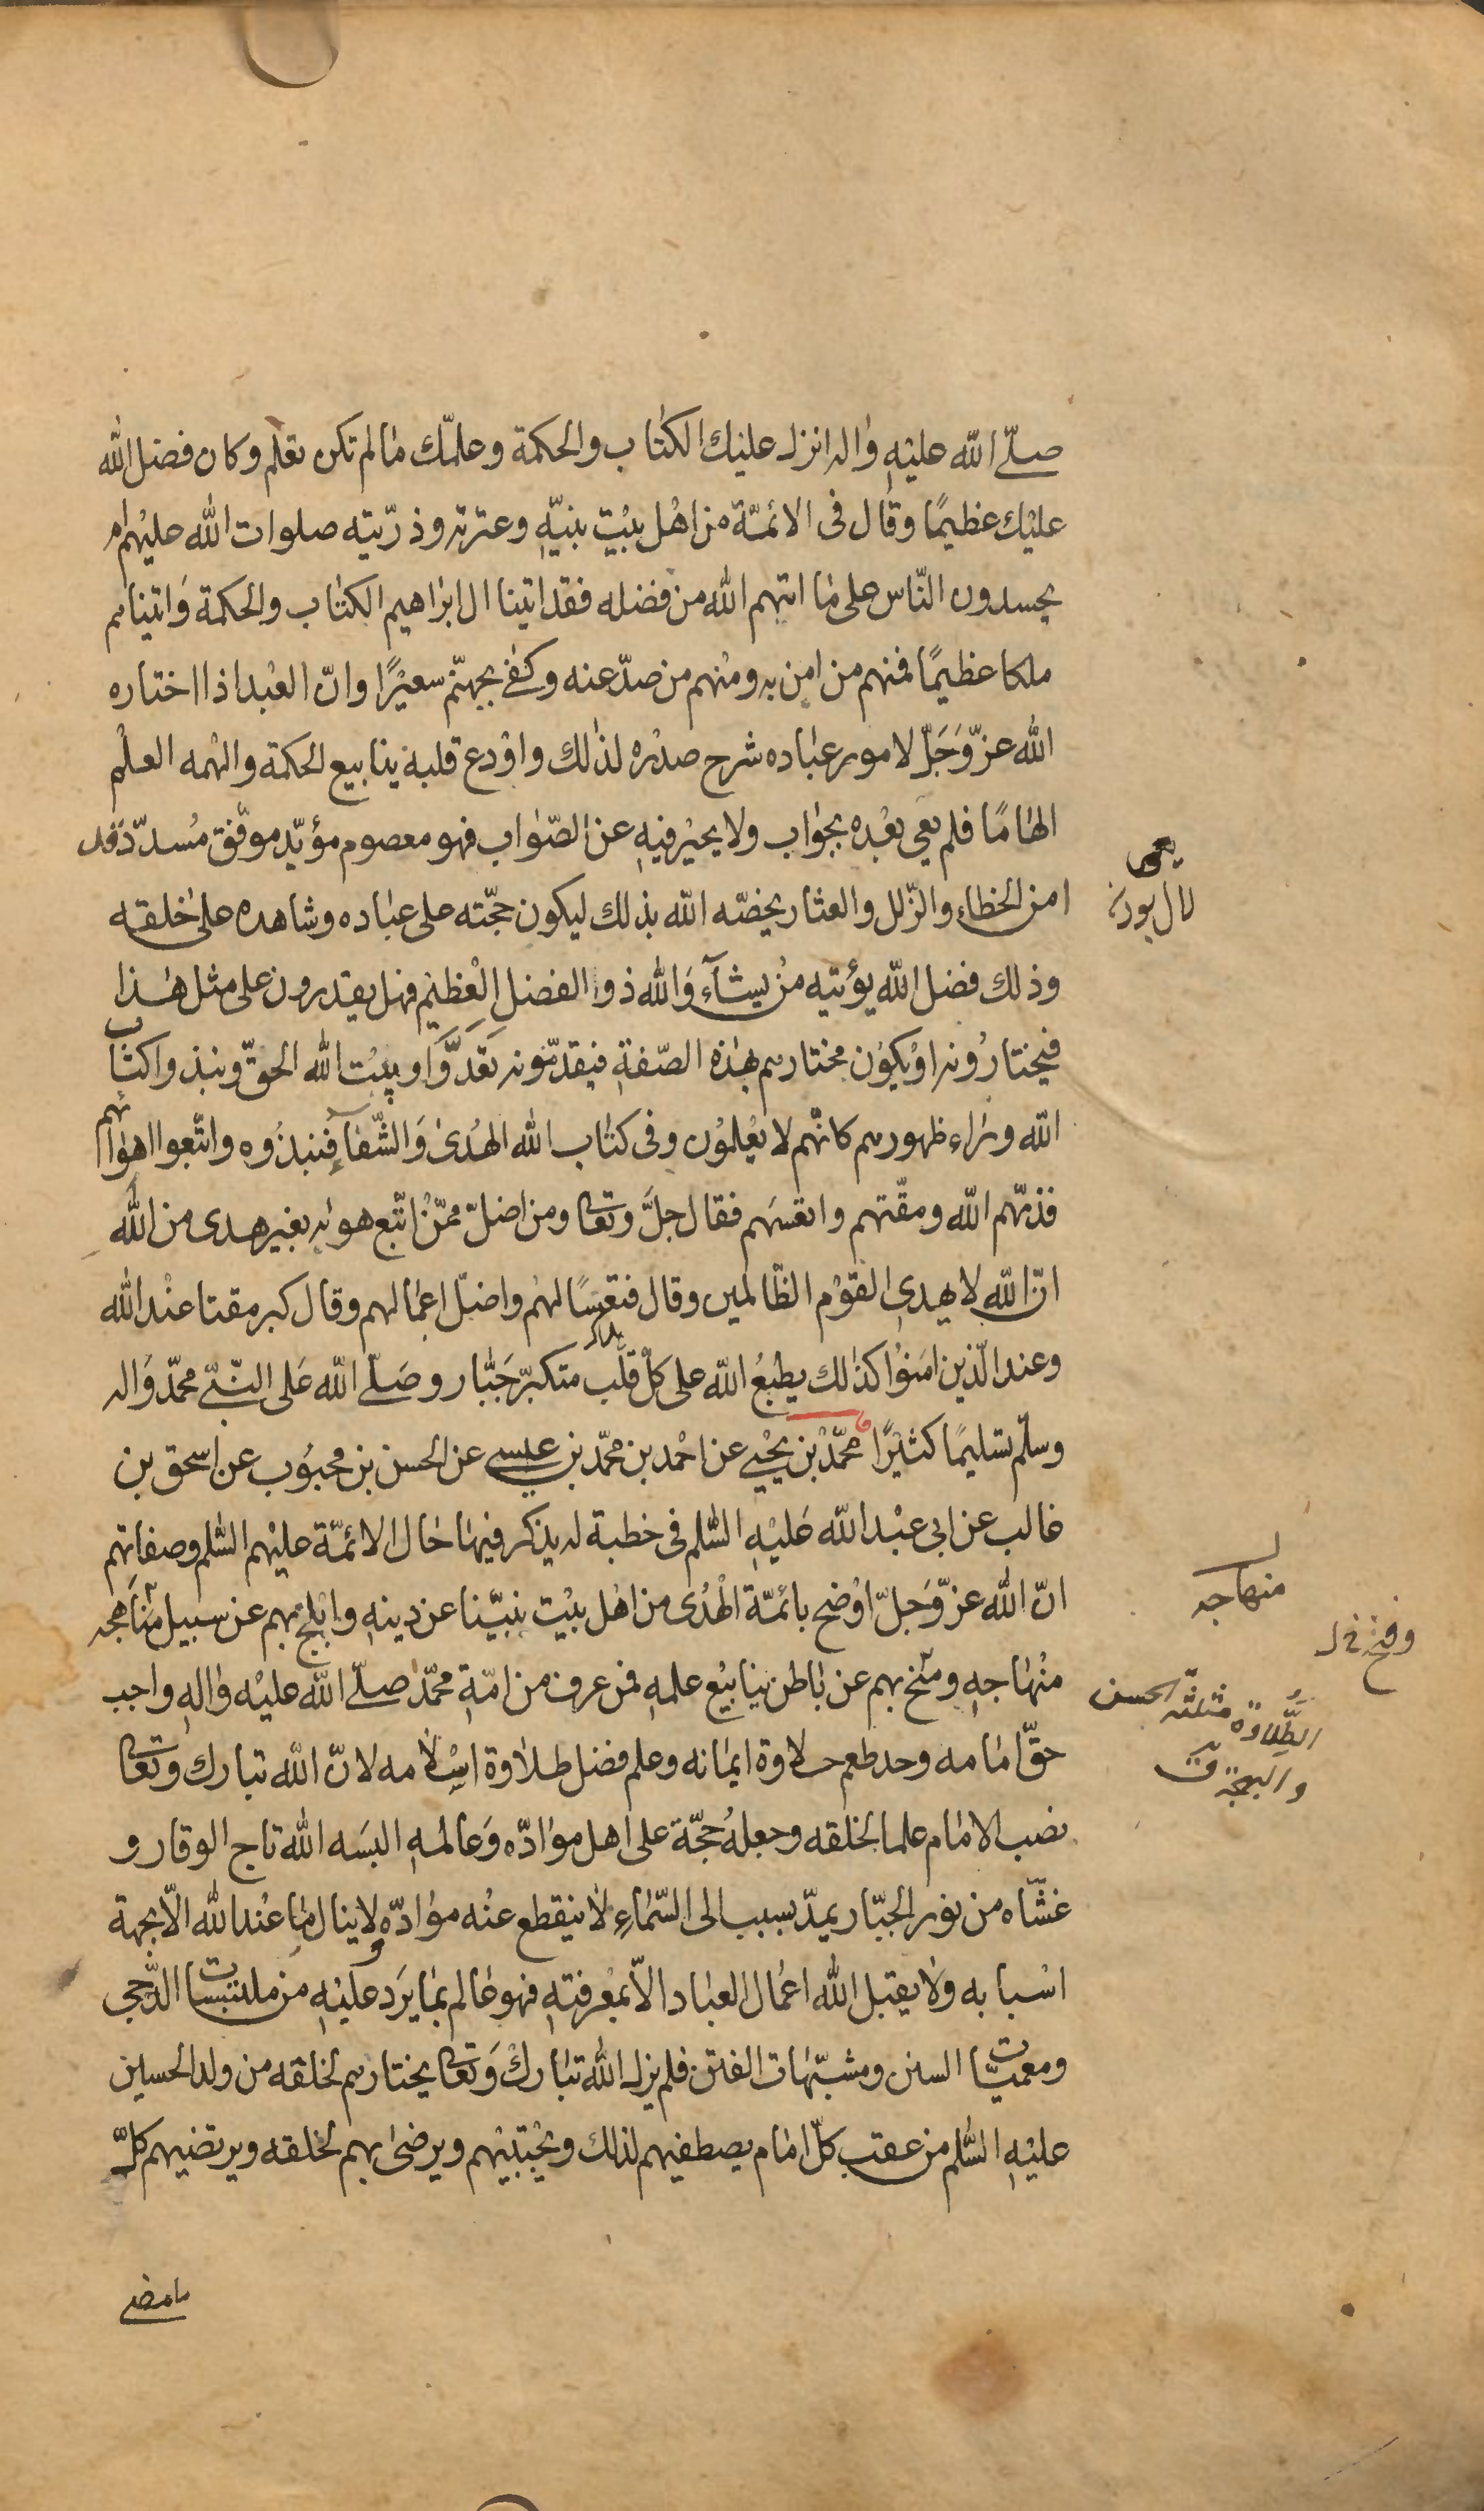 صلّى الله عليه واله انزل عليك الكتاب والحكمة وعلمّك ما لم تكن تعلم وكان فضل الله
عليك عظيمًا وقال فى الائمّة من اهل بيت نبيّه وعترته وذرّيته صلوات الله عليهم ام
يحسدون النّاس على ما اتيهم الله من فضله فقد اتينا ال ابراهيم الكتاب والحكمة واتيناهم
ملكا عظيمًا فمنهم من امن به ومنهم من صدّ عنه وكفى بجهنّم سعيرًا وانّ العبد اذا اختاره
الله عزّ وجلّ لامور عباده شرح صدره لذلك واودع قلبه ينابيع الحكمة والهمه العلم
الهاما فلم يعى بعده بجواب ولا يحير فيه عن الصّواب فهو معصوم مؤيّد موفّق مسدّد قد
يعى
امن الخطاء والزّلل والعثار يخصّه الله بذلك ليكون حجّته على عباده وشاهده على خلقه
وذلك فضل الله يؤتيه من يشآء والله ذوا الفضل العظيم فهل يقدرون على مثل هذا
فيختارونه او يكون مختارهم بهذه الصّفة فيقدّمونه تعدّوا وبيت الله الحقّ ونبذوا كتاب
الله وراء ظهورهم كانّهم لا يعلمون وفى كتاب الله الهدى والشّفآء فنبذوه واتّبعوا اهوائهم
فذمّهم الله ومقّتهم واتعسهم فقال جلّ وتعالى ومن اضلّ ممّن اتّبع هوايه بغير هدى من الله
انّ الله لا يهدى القوم الظّالمين وقال فتعسًا لهم واضلّ اعمالهم وقال كبر مقتا عند الله
وعند الّذين امنوا كذلك يطبع الله على كلّ قلب متكبّر جبّار وصلّى الله على النّبيّ محمّد واله
وسلّم تسليمًا كثيرًا محمّد بن يحيى عن احمد بن محمّد بن عيسى عن الحسن بن محبوب عن اسحق بن
غالب عن ابى عبد الله عليه السّلم فى خطبة له يذكر فيها حال الائمّة عليهم السّلم وصفاتهم
انّ الله عزّ وجلّ اوضح بائمّة الهدى من اهل بيت نبيّنا عن دينه وابلج بهم عن سبيل مناهجه
منهاجه
منهاجه ومنح بهم عن باطن ينابيع علمه فمن عرف من امّة محمّد صلّى الله عليه واله واجب
وفتح خ ل
حقّ امامه وجد طعم حلاوة ايمانه وعلم فضل طلاوة اسلامه لانّ الله تبارك وتعالى
الطّلاوة مثلثه الحسن
والبهجة ق
نصب الامام علما لخلقه وجعله حجّة على اهل موادّه وعالمه البسه الله تاج الوقار و
غشّاه من نور الجبّار يمدّ بسبب الى السّماء لا ينقطع عنه موادّه ولا ينال ما عند الله الّا بجهة
اسبابه ولا يقبل الله اعمال العباد الّا بمعرفته فهو عالم بما يرد عليه من ملتبسات الدّجى
ومعميّات السنن ومشبّهات الفتن فلم يزل الله تبارك وتعالى يختارهم لخلقه من ولد الحسين
عليه السّلم من عقب كلّ امام يصطفيهم لذلك ويجتبيهم ويرضى بهم لخلقه ويرتضيهم كلّ
ما مضى